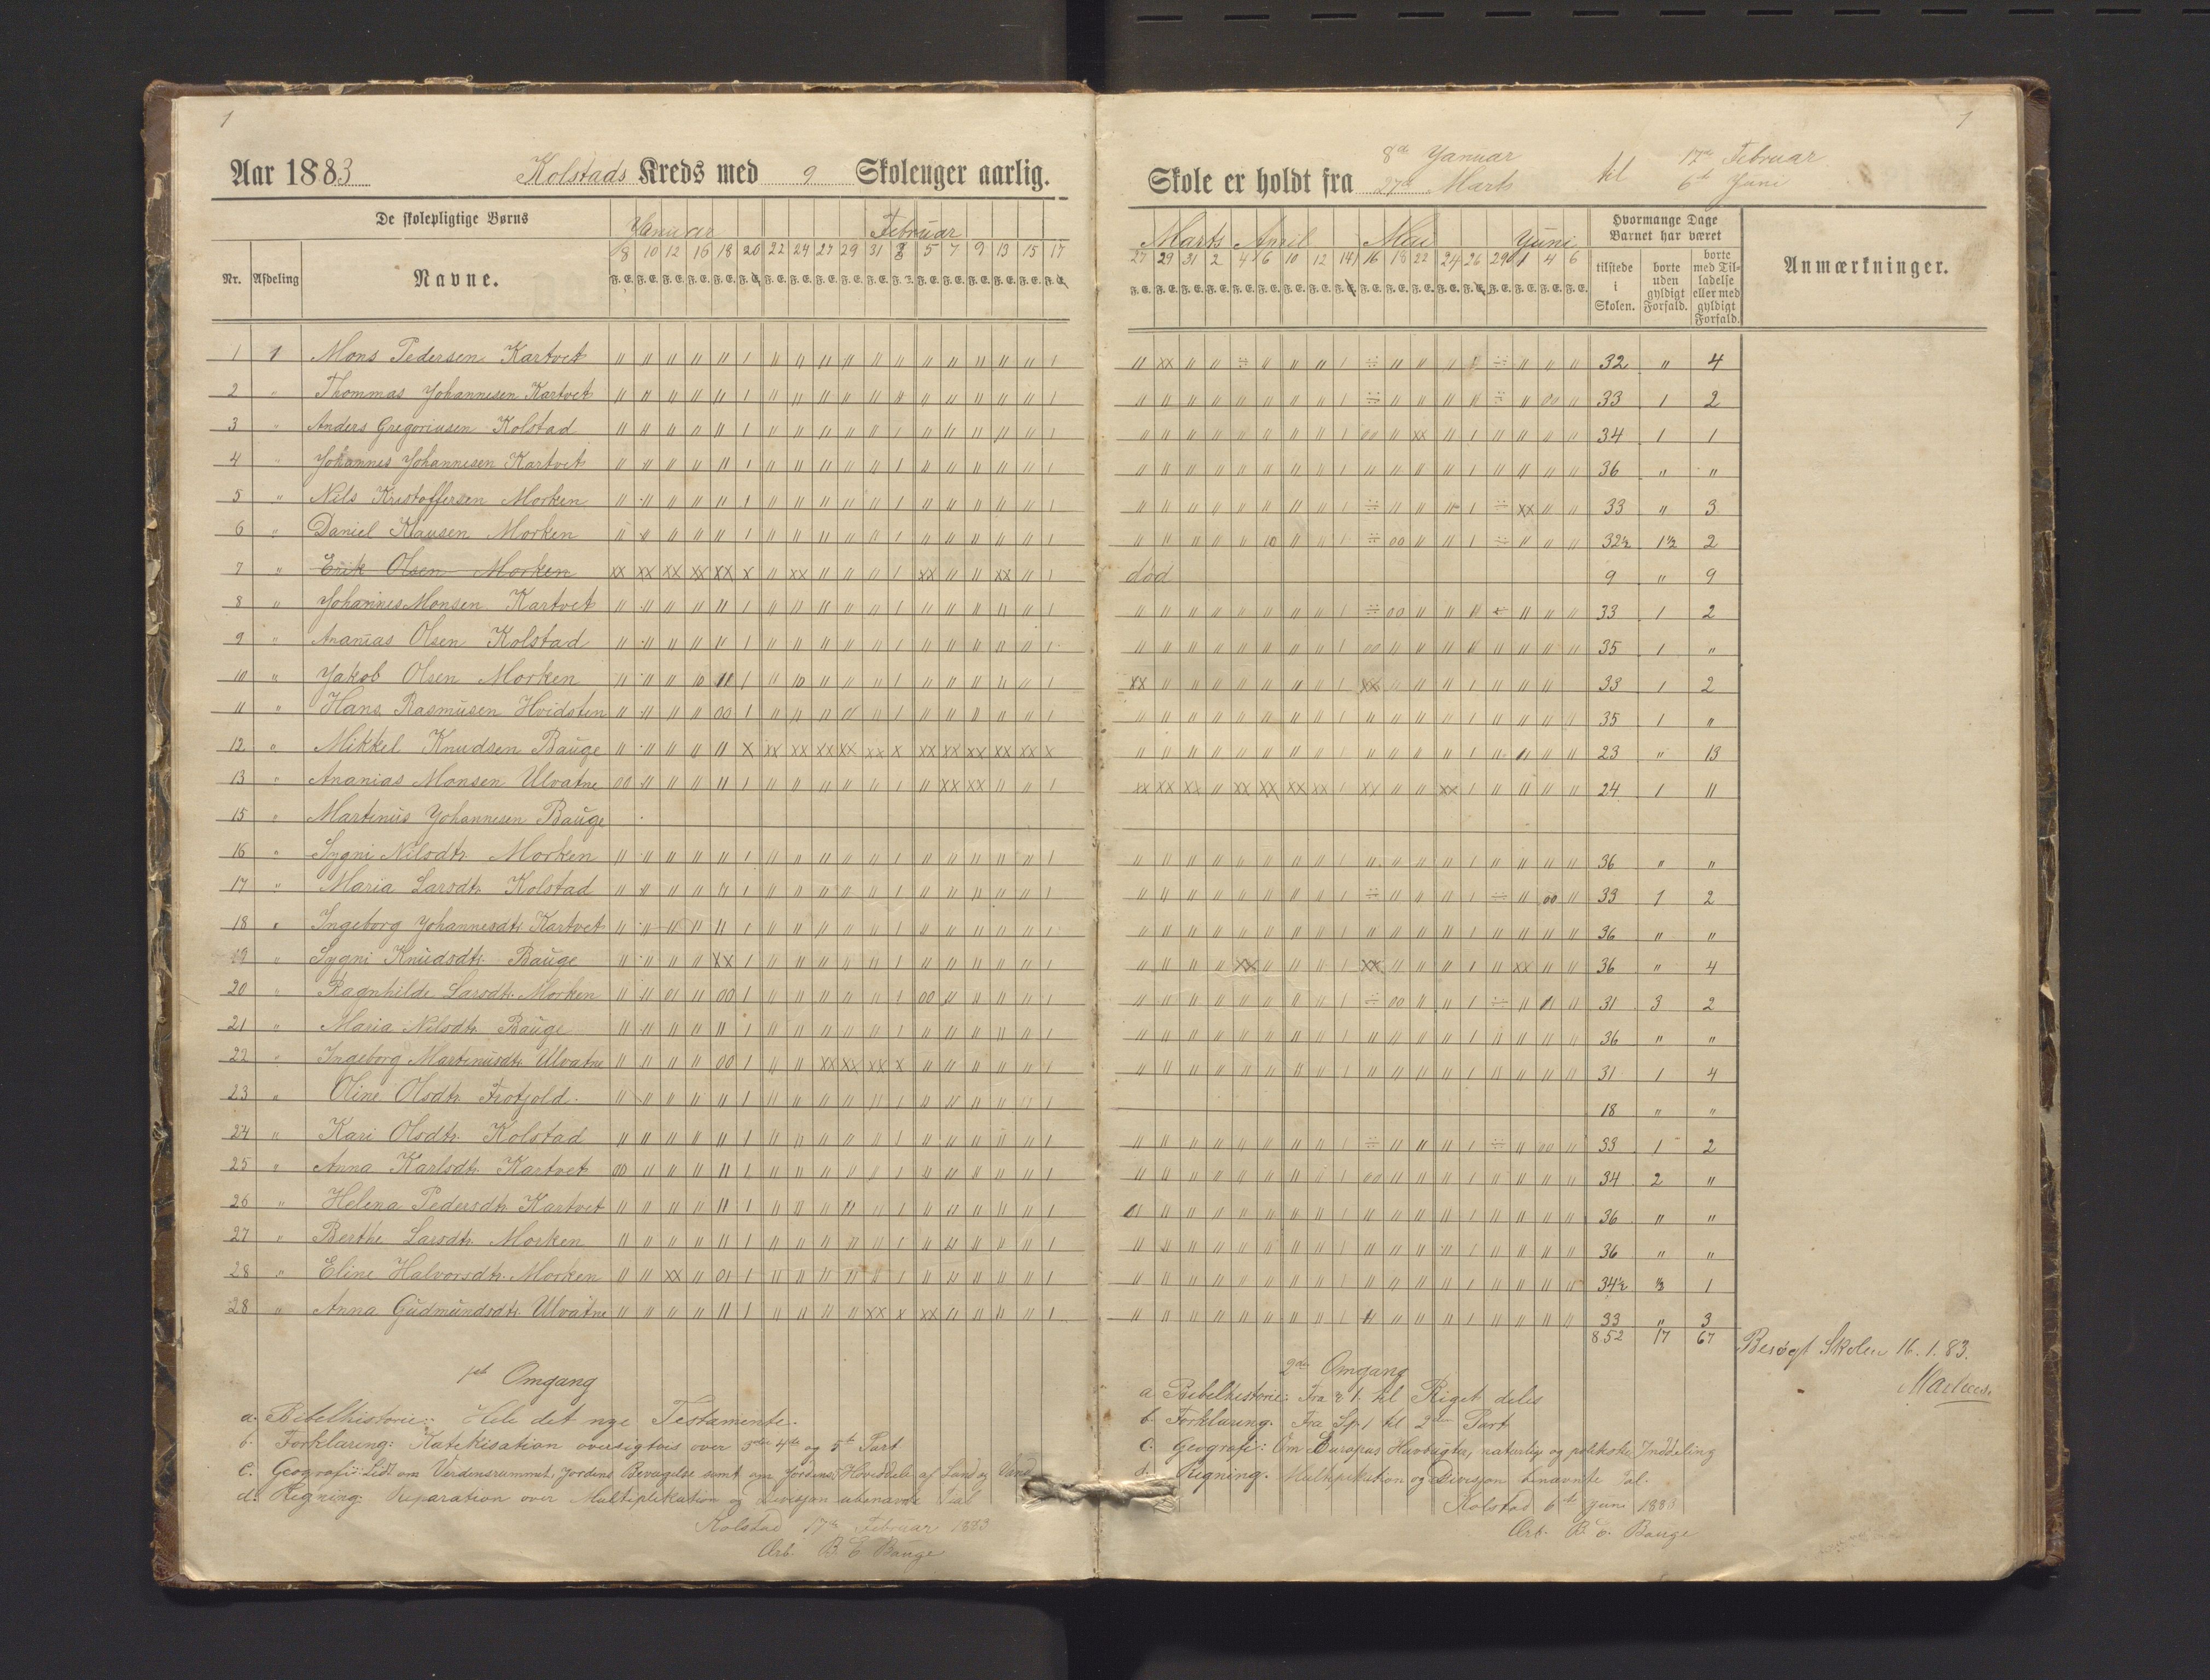 1
Aar 1883 Kolstads Kreds med 9 Skoleuger aarlig.
De skolepligtige Børns
Januar Februar
Nr. Afdeling Navne.
8 10 12 16 18 20 22 24 27 29 31 3 5 7 9 13 15 17
1 1 Mons Pedersen Kartvet
2 " Thommas Johannesen Kartvet
3 " Anders Gregoriusen Kolstad
4 " Johannes Johannesen Kartvet
5 " Nils Kristoffersen Morken
6 " Daniel Klausen Morken
7 " Erik Olsen Morken
8 " Johannes Monsen Kartvet
9 " Ananias Olsen Kolstad
10 " Jakob Olsen Morken
11 " Hans Rasmusen Hvidsten
12 " Mikkel Knudsen Bauge
13 " Ananias Monsen Ulvatne
15 " Martinus Johannesen Bauge
16 " Sygni Nilsdtr. Morken
17 " Maria Larsdtr. Kolstad
18 " Ingeborg Johannesdtr Kartvet
19 " Sygni Knudsdtr. Bauge
20 " Ragnhilde Larsdtr. Morken
21 " Maria Nilsdtr. Bauge
22 " Ingeborg Martinusdtr. Ulvatne
23 " Oline Olsdtr.
24 " Kari Olsdtr. Kolstad
25 " Anna Karlsdtr. Kartvet
26 " Helena Pedersdtr. Kartvet
27 " Berthe Larsdtr. Morken
28 " Eline Halvorsdtr. Morken
28 " Anna Gudmundsdtr. Ulvatne
1ste Omgang
a. Bibelhistorie: Hele det nye Testamente.
b. Forklaring: Katekisation oversigtvis over 3die 4de og 5te Part
c. Geografi: Lidt om Verdensrummet, Jordens Bevægelse samt om Jordens Hoveddele af Land og Vand
d. Regning: Reparation over Multiplikation og Divisjon ubenævnte Tal
Kolstad 17de Februar 1883
Ærb. B. E. Bauge
1
Skole er holdt fra 8de Januar til 17de Februar
27de Marts 6te Juni
Marts April Mai Juni
27 29 31 2 4 6 10 12 14 16 18 22 24 26 29 1 4 6
Hvormange Dage Barnet har været
tilstede i Skolen.
borte uden gyldigt Forfald.
borte med Tilladelse eller med gyldigt Forfald.
Anmærkninger.
32 " 4
33 1 2
34 1 1
36 " "
33 " 3
32½ 1½ 2
død 9 " 9
33 1 2
35 1 "
33 1 2
35 1 "
23 " 13
24 1 11
36 " "
33 1 2
36 " "
36 " 4
31 3 2
36 " "
31 1 4
18 " "
33 1 2
34 2 "
36 " "
36 " "
34½ ½ 1
33 " 3
852 17 67
Besøgt Skolen 16.1.83.
2den Omgang
a Bibelhistorie: Fra til Riget deles
b. Forklaring. Fra Sp. 1 til 2den Part
c. Geografi: Om Europas Havbugter, naturlige og politiske Inddeling
d. Regning. Multiplikation og Divisjon benævnte Tal.
Kolstad 6te Juni 1883
Ærb. B. E. Bauge